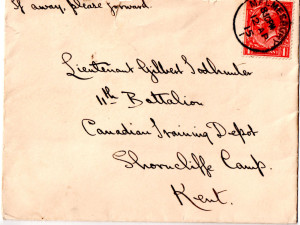 If away, please forward.
Lieutenant Gilbert Todhunter
11th Battalion
Canadian Training Depot
Shorncliffe Camp.
Kent.